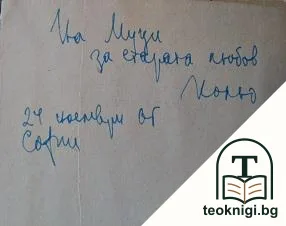 На Муци
за старата любов
Кольо
24 ноември от
София
T
teoknigi.bg